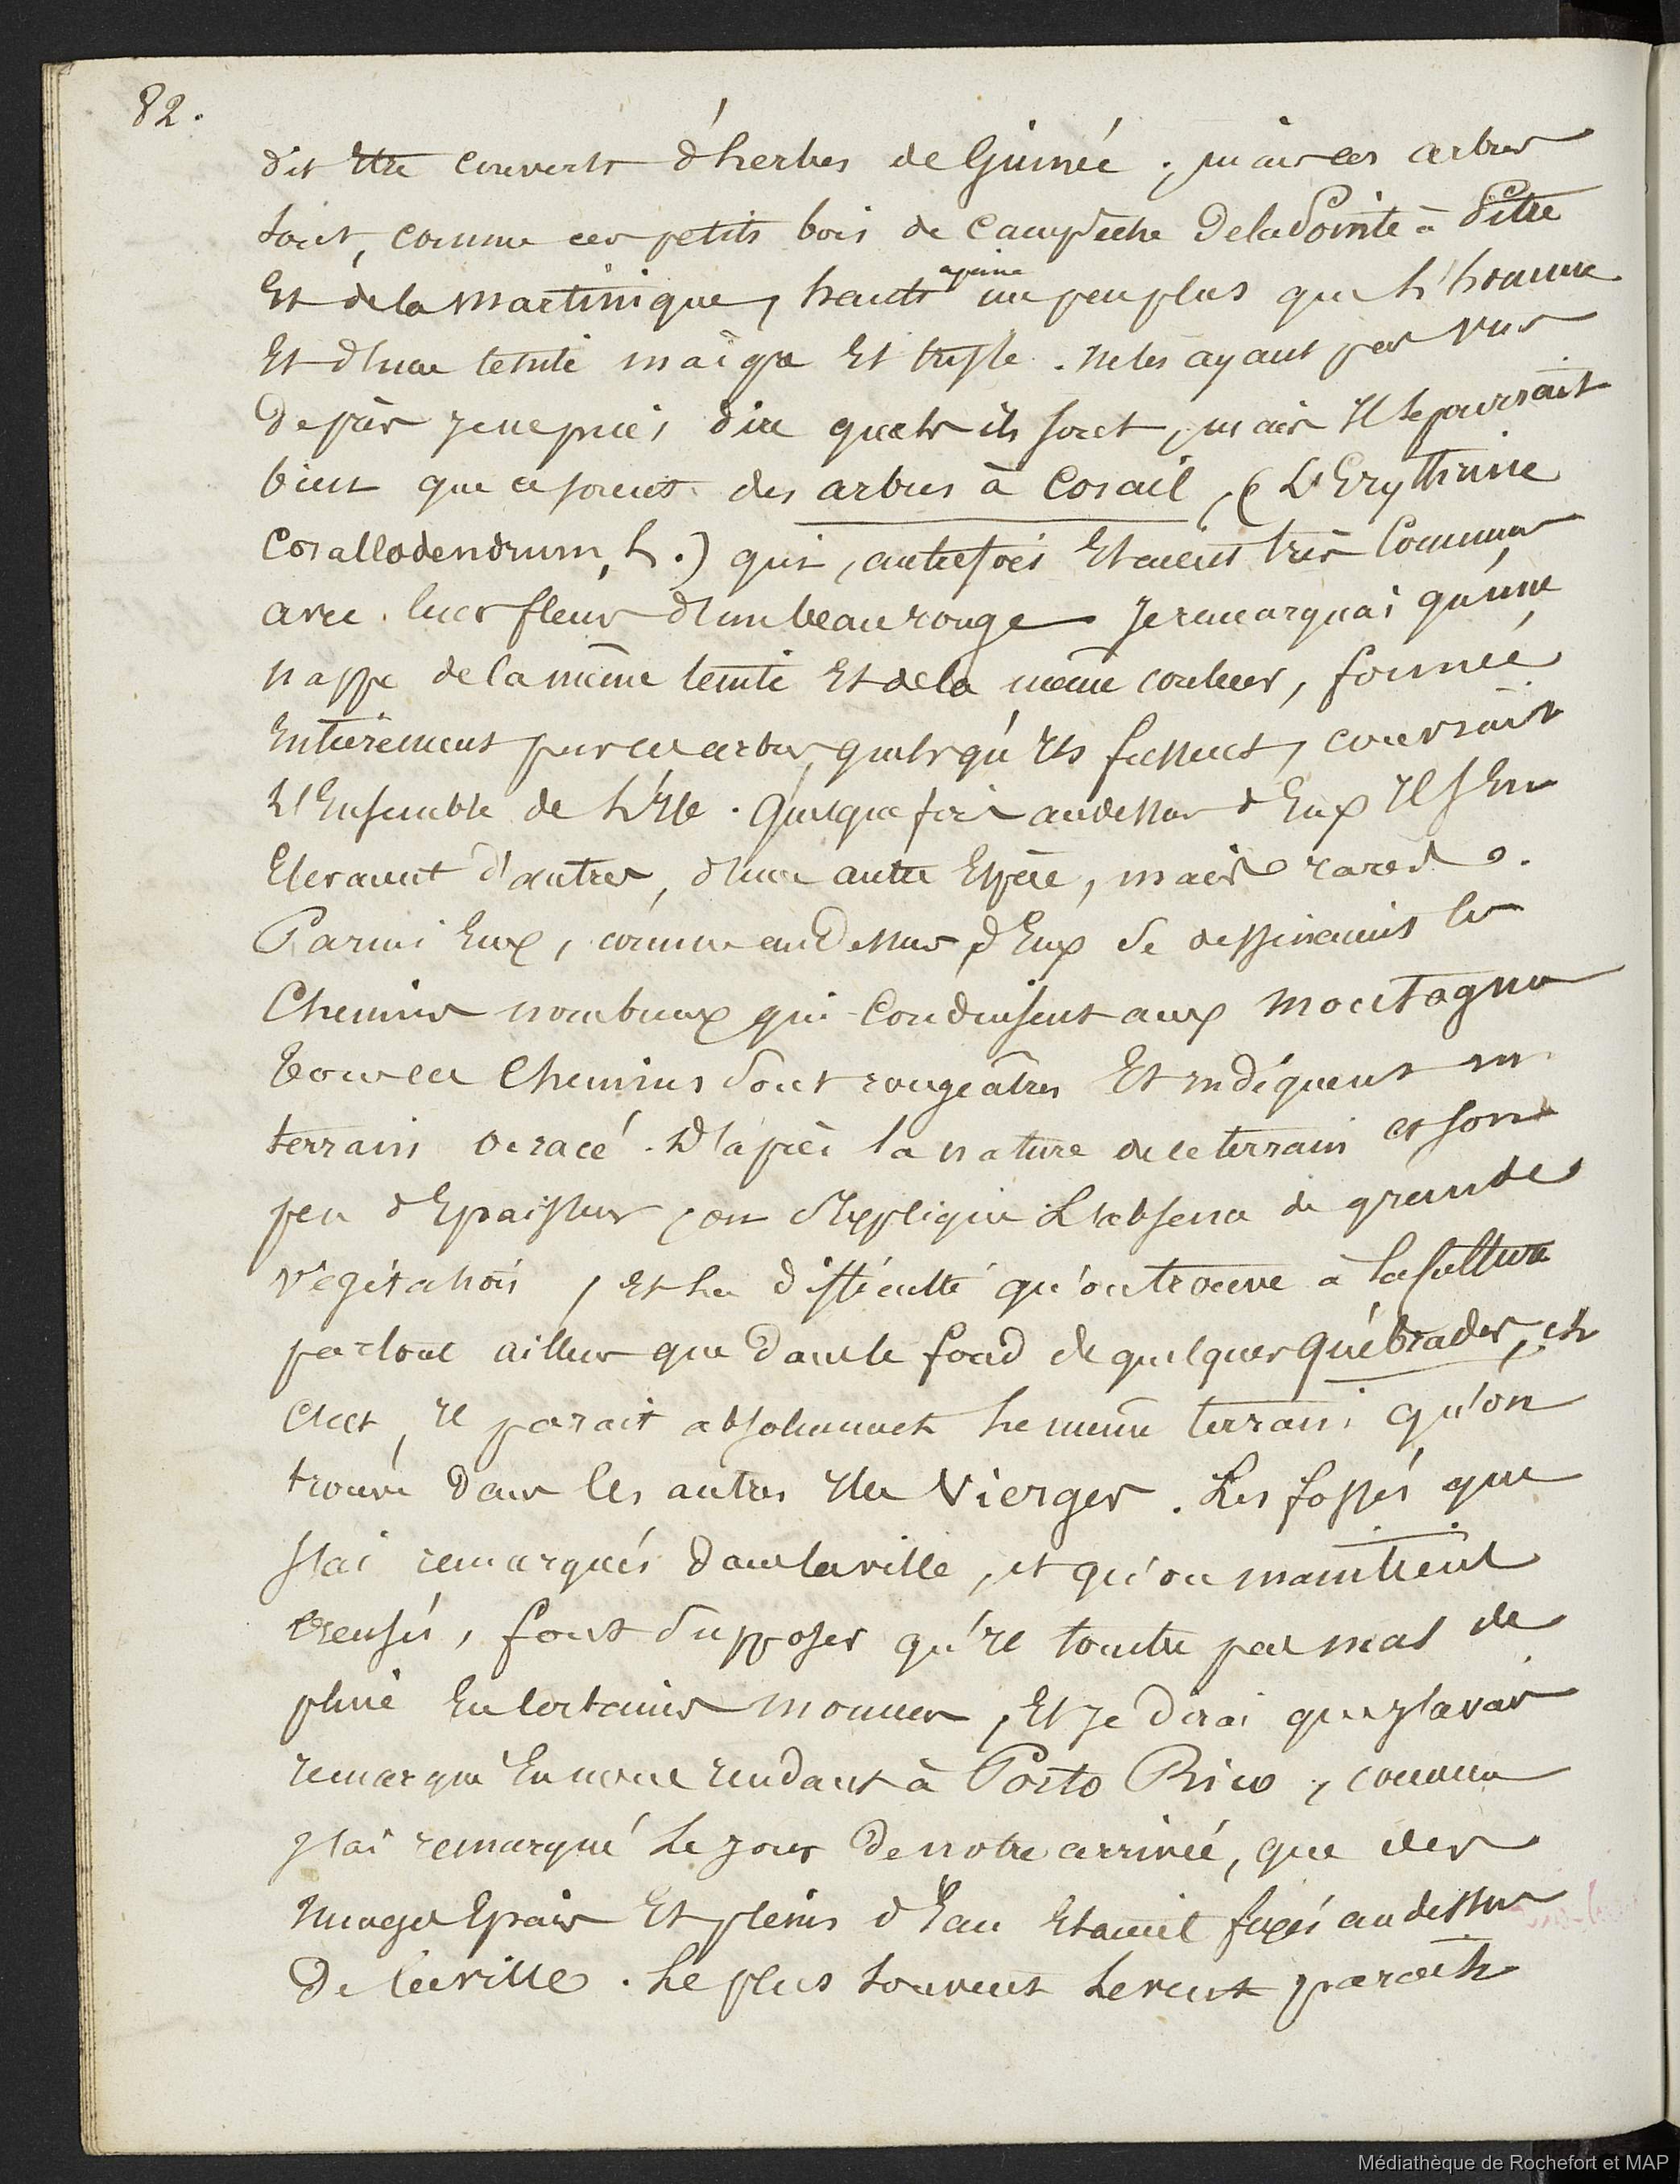 82.
dit être couverts d'herbes de Guinée ; mais ces arbres
sont, comme ces petits bois de Campêche de la Pointe à Pitre
Et de la Martinique, hauts à peine un peu plus que l'homme
Et d'une teinte maigre Et triste. ne les ayant pas vus
De près je ne puis dire quels ils sont, mais Il se pourrait
bien que ce soient des arbres à Corail, (L'Erythrine
Corallodendrum, L.) qui, autrefois Etaient très Communs
avec leurs fleurs d'un beau rouge Je remarquai qu'une
nappe de la même teinte Et de la même couleur, formée
Entièrement par ces arbres, quels qu'Ils fussent, couvrait
L'Ensemble de l'Ile. Quelquefois au dessus d'Eux Il s'En
Elevaient d'autres, d'une autre Espèce, mais rares.
Parmi Eux, comme au Dessus d'Eux se dessinaient les
Chemins nombreux qui Conduisent aux Montagnes
Tous ces Chemins sont rougeâtres Et Indiquent un
terrain ocracé. D'après la nature de ce terrain et son
peu d'Epaisseur, on s'Explique L'absence de grandes
végétations, et la difficulté qu'on trouve à la culture
partout ailleurs que Dans le fond de quelques québrades, et
c'est, Il parait absolument le même terrain qu'on
trouve Dans les autres Iles Vierges. Les fossés que
J'ai remarqués Dans la ville, et qu'on maintient
creusés, font supposer qu'Il tombe pas mal de
pluie En certains moments, Et Je dirai que j'avais
remarqué En nous rendant à Porto Rico, comme
J'ai remarqué Le jour De notre arrivée, que des
nuages Epais Et pleins d'Eau Etaient fixés au dessus
De la ville. Le plus souvent Le vent parait
Médiathèque de Rochefort et MAP